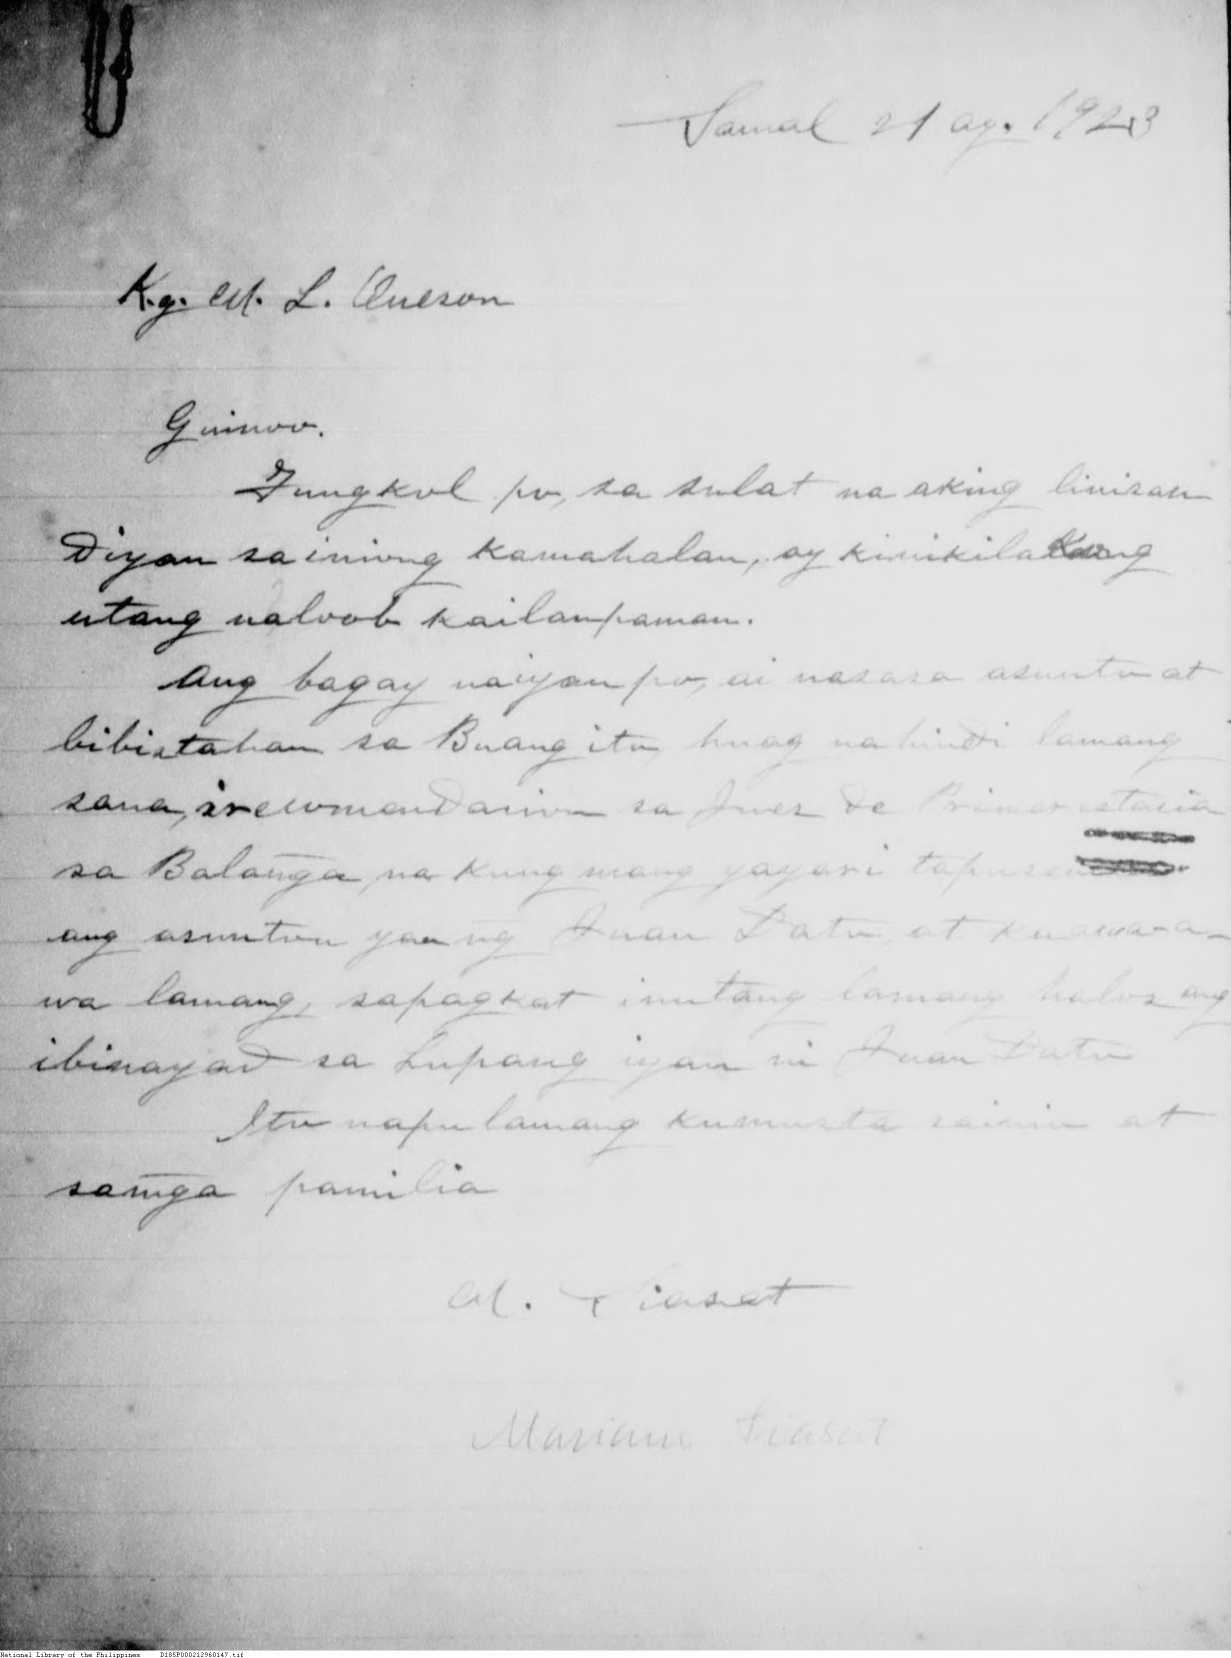 Samal 21 ag. 1923
K.g. M. L. Queson
Guinoo.
Tungkol po, sa sulat na aking linisan
Diyan sa iniong kamahalan, ay kinikila kong
utang naloob kailanpaman.
Ang bagay naiyan po, ai nasasa asunto at
bibistahan sa Buang ito, huag na hindi lamang
sana, irecomendasion sa Juez de Primer estacia
sa Balan̄ga, na kung mang yayari tapusin
ang asuntou yaa ng Juan Datu, at kaawa-a-
wa lamang, sapagkat inutang lamang halos ang
ibinayad sa Lupang iyan ni Juan Datu
Ito napu lamang kumusta sainio at
sam̄ga pamilia
M. Siasat
Mariano Siasat
National Library of the Philippines D185P000212960147.tif